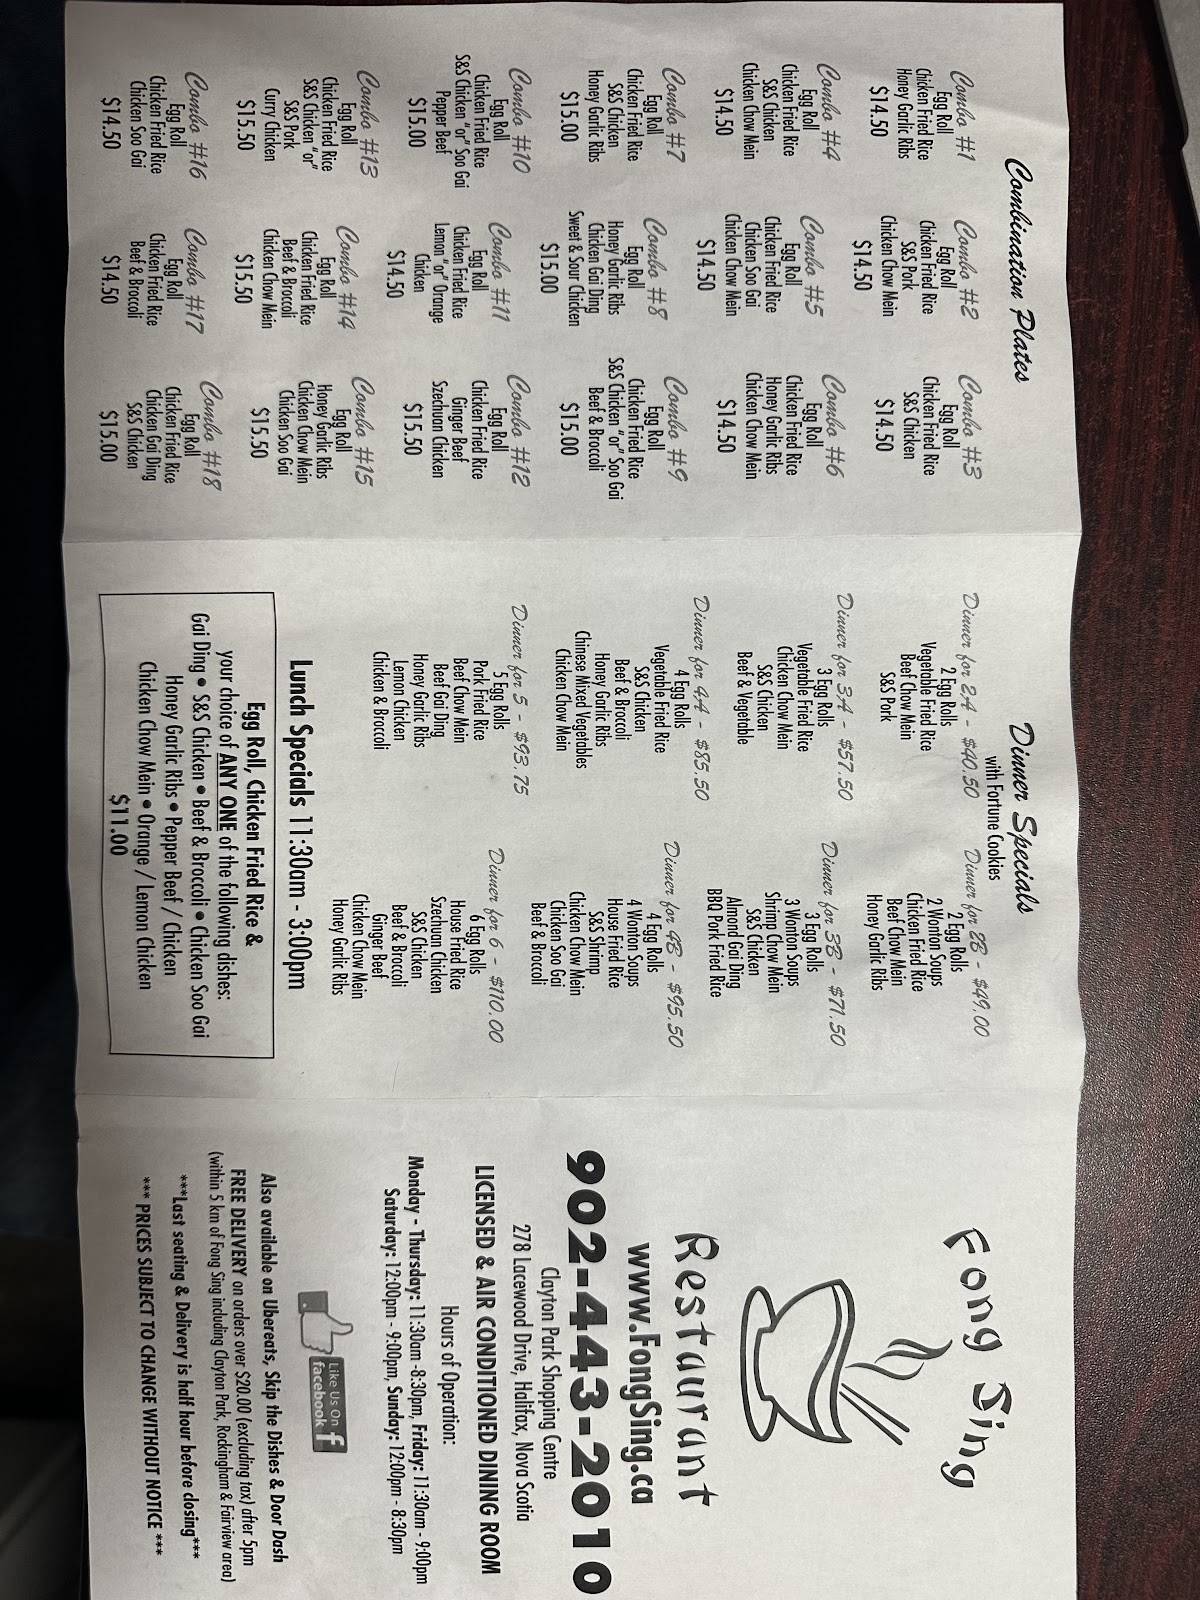 Combination Plates
Combo #1
Egg Roll
Chicken Fried Rice
Honey Garlic Ribs
$14.50
Combo #2
Egg Roll
Chicken Fried Rice
S&S Pork
Chicken Chow Mein
$14.50
Combo #3
Egg Roll
Chicken Fried Rice
S&S Chicken
$14.50
Combo #4
Egg Roll
Chicken Fried Rice
S&S Chicken
Chicken Chow Mein
$14.50
Combo #5
Egg Roll
Chicken Fried Rice
Chicken Soo Gai
Chicken Chow Mein
$14.50
Combo #6
Egg Roll
Chicken Fried Rice
Honey Garlic Ribs
Chicken Chow Mein
$14.50
Combo #7
Egg Roll
Chicken Fried Rice
S&S Chicken
Honey Garlic Ribs
$15.00
Combo #8
Egg Roll
Honey Garlic Ribs
Chicken Gai Ding
Sweet & Sour Chicken
$15.00
Combo #9
Egg Roll
Chicken Fried Rice
S&S Chicken "or" Soo Gai
Beef & Broccoli
$15.00
Combo #10
Egg Roll
Chicken Fried Rice
S&S Chicken "or" Soo Gai
Pepper Beef
$15.00
Combo #11
Egg Roll
Chicken Fried Rice
Lemon "or" Orange
Chicken
$14.50
Combo #12
Egg Roll
Chicken Fried Rice
Ginger Beef
Szechuan Chicken
$15.50
Combo #13
Egg Roll
Chicken Fried Rice
S&S Chicken "or"
S&S Pork
Curry Chicken
$15.50
Combo #14
Egg Roll
Chicken Fried Rice
Beef & Broccoli
Chicken Chow Mein
$15.50
Combo #15
Egg Roll
Honey Garlic Ribs
Chicken Chow Mein
Chicken Soo Gai
$15.50
Combo #16
Egg Roll
Chicken Fried Rice
Chicken Soo Gai
$14.50
Combo #17
Egg Roll
Chicken Fried Rice
Beef & Broccoli
$14.50
Combo #18
Egg Roll
Chicken Fried Rice
Chicken Gai Ding
S&S Chicken
$15.00
Dinner Specials
with Fortune Cookies
Dinner for 2A - $40.50
2 Egg Rolls
Vegetable Fried Rice
Beef Chow Mein
S&S Pork
Dinner for 2B - $49.00
2 Egg Rolls
2 Wonton Soups
Chicken Fried Rice
Beef Chow Mein
Honey Garlic Ribs
Dinner for 3A - $57.50
3 Egg Rolls
Vegetable Fried Rice
Chicken Chow Mein
S&S Chicken
Beef & Vegetable
Dinner for 3B - $71.50
3 Egg Rolls
3 Wonton Soups
Shrimp Chow Mein
S&S Chicken
Almond Gai Ding
BBQ Pork Fried Rice
Dinner for 4A - $85.50
4 Egg Rolls
Vegetable Fried Rice
S&S Chicken
Beef & Broccoli
Honey Garlic Ribs
Chinese Mixed Vegetables
Chicken Chow Mein
Dinner for 4B - $95.50
4 Egg Rolls
4 Wonton Soups
House Fried Rice
S&S Shrimp
Chicken Chow Mein
Chicken Soo Gai
Beef & Broccoli
Dinner for 5 - $93.75
5 Egg Rolls
Pork Fried Rice
Beef Chow Mein
Beef Gai Ding
Honey Garlic Ribs
Lemon Chicken
Chicken & Broccoli
Dinner for 6 - $110.00
6 Egg Rolls
House Fried Rice
Szechuan Chicken
S&S Chicken
Beef & Broccoli
Ginger Beef
Chicken Chow Mein
Honey Garlic Ribs
Lunch Specials 11:30am - 3:00pm
Egg Roll, Chicken Fried Rice &
your choice of ANY ONE of the following dishes:
Gai Ding • S&S Chicken • Beef & Broccoli • Chicken Soo Gai
Honey Garlic Ribs • Pepper Beef / Chicken
Chicken Chow Mein • Orange / Lemon Chicken
$11.00
Fong Sing
Restaurant
www.FongSing.ca
902-443-2010
Clayton Park Shopping Centre
278 Lacewood Drive, Halifax, Nova Scotia
LICENSED & AIR CONDITIONED DINING ROOM
Hours of Operation:
Monday - Thursday: 11:30am -8:30pm, Friday: 11:30am - 9:00pm
Saturday: 12:00pm - 9:00pm, Sunday: 12:00pm - 8:30pm
Like Us On
facebook
f
Also available on Ubereats, Skip the Dishes & Door Dash
FREE DELIVERY on orders over $20.00 (excluding tax) after 5pm
(within 5 km of Fong Sing including Clayton Park, Rockingham & Fairview area)
***Last seating & Delivery is half hour before closing***
*** PRICES SUBJECT TO CHANGE WITHOUT NOTICE ***